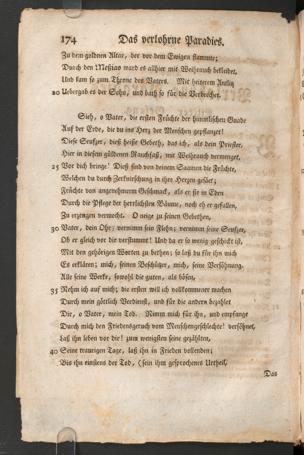 174 Das verlohrne Paradies.
Zu dem goldnen Altar, der vor dem Ewigen flammte;
Durch den Meßias ward es allhier mit Weihrauch bekleidet,
Und kam so zum Throne des Vaters. Mit heiterem Antlitz
20 Uebergab es der Sohn, und bath so für die Verbrecher.
Sieh, o Vater, die ersten Früchte der himmlischen Gnade
Auf der Erde, die du ins Herz der Menschen gepflanzet!
Diese Seufzer, dieß heiße Gebeth, das ich, als dein Priester,
Hier in diesem güldenen Rauchfaß, mit Weihrauch vermenget,
25 Vor dich bringe! Dieß sind von deinem Saamen die Früchte,
Welchen du durch Zerknirschung in ihre Herzen gesäet;
Früchte von angenehmerm Geschmack, als er sie in Eden
Durch die Pflege der herrlichsten Bäume, noch eh er gefallen,
Zu erzeugen vermocht. O neige zu seinen Gebethen,
30 Vater, dein Ohr; vernimm sein Flehn; vernimm seine Seufzer,
Ob er gleich vor dir verstummt! Und da er so wenig geschickt ist,
Mit den gehörigen Worten zu bethen; so laß du für ihn mich
Es erklären; mich, seinen Beschützer, mich, seine Versöhnung.
Alle seine Werke, sowohl die guten, als bösen,
35 Nehm ich auf mich; die ersten will ich vollkommner machen
Durch mein göttlich Verdienst, und für die andern bezahlet
Dir, o Vater, mein Tod. Nimm mich für ihn, und empfange
Durch mich den Friedensgeruch vom Menschengeschlechte! versöhnet,
Laß ihn leben vor dir! zum wenigsten seine gezählten,
40 Seine traurigen Tage, laß ihn in Frieden vollenden;
Bis ihn einstens der Tod, (sein ihm gesprochenes Urtheil,
Das